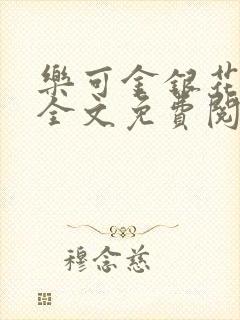 樂可金銀花
全文免費閱
穆念慈